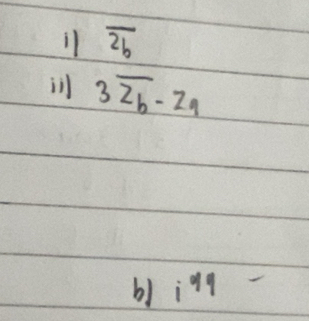 i) z̅_b̅
ii) 3 z̅_b̅ - z_a
b) i⁹⁹ -